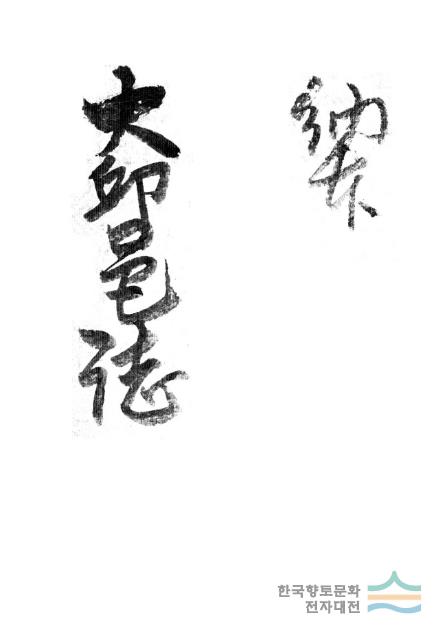 大邱邑誌
한국향토문화
전자대전